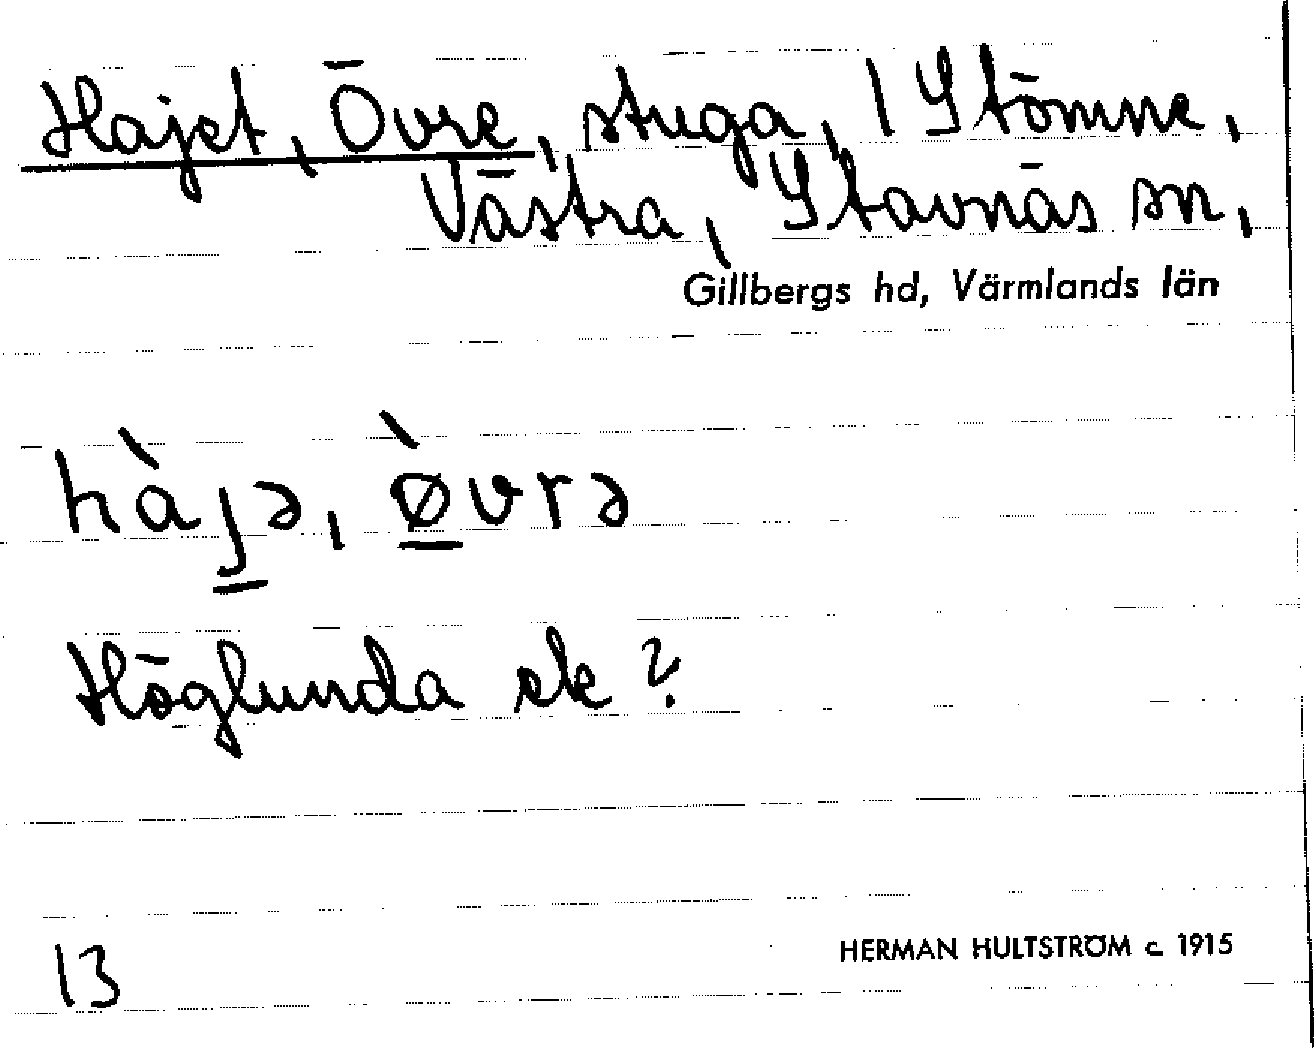 Hajet, Övre, stuga, 1 Stömne,
Västra, Stavnäs sn,
Gillbergs hd, Värmlands län
hàjə, ø̀vrə
Höglunda ek?
13
HERMAN HULTSTRÖM c. 1915